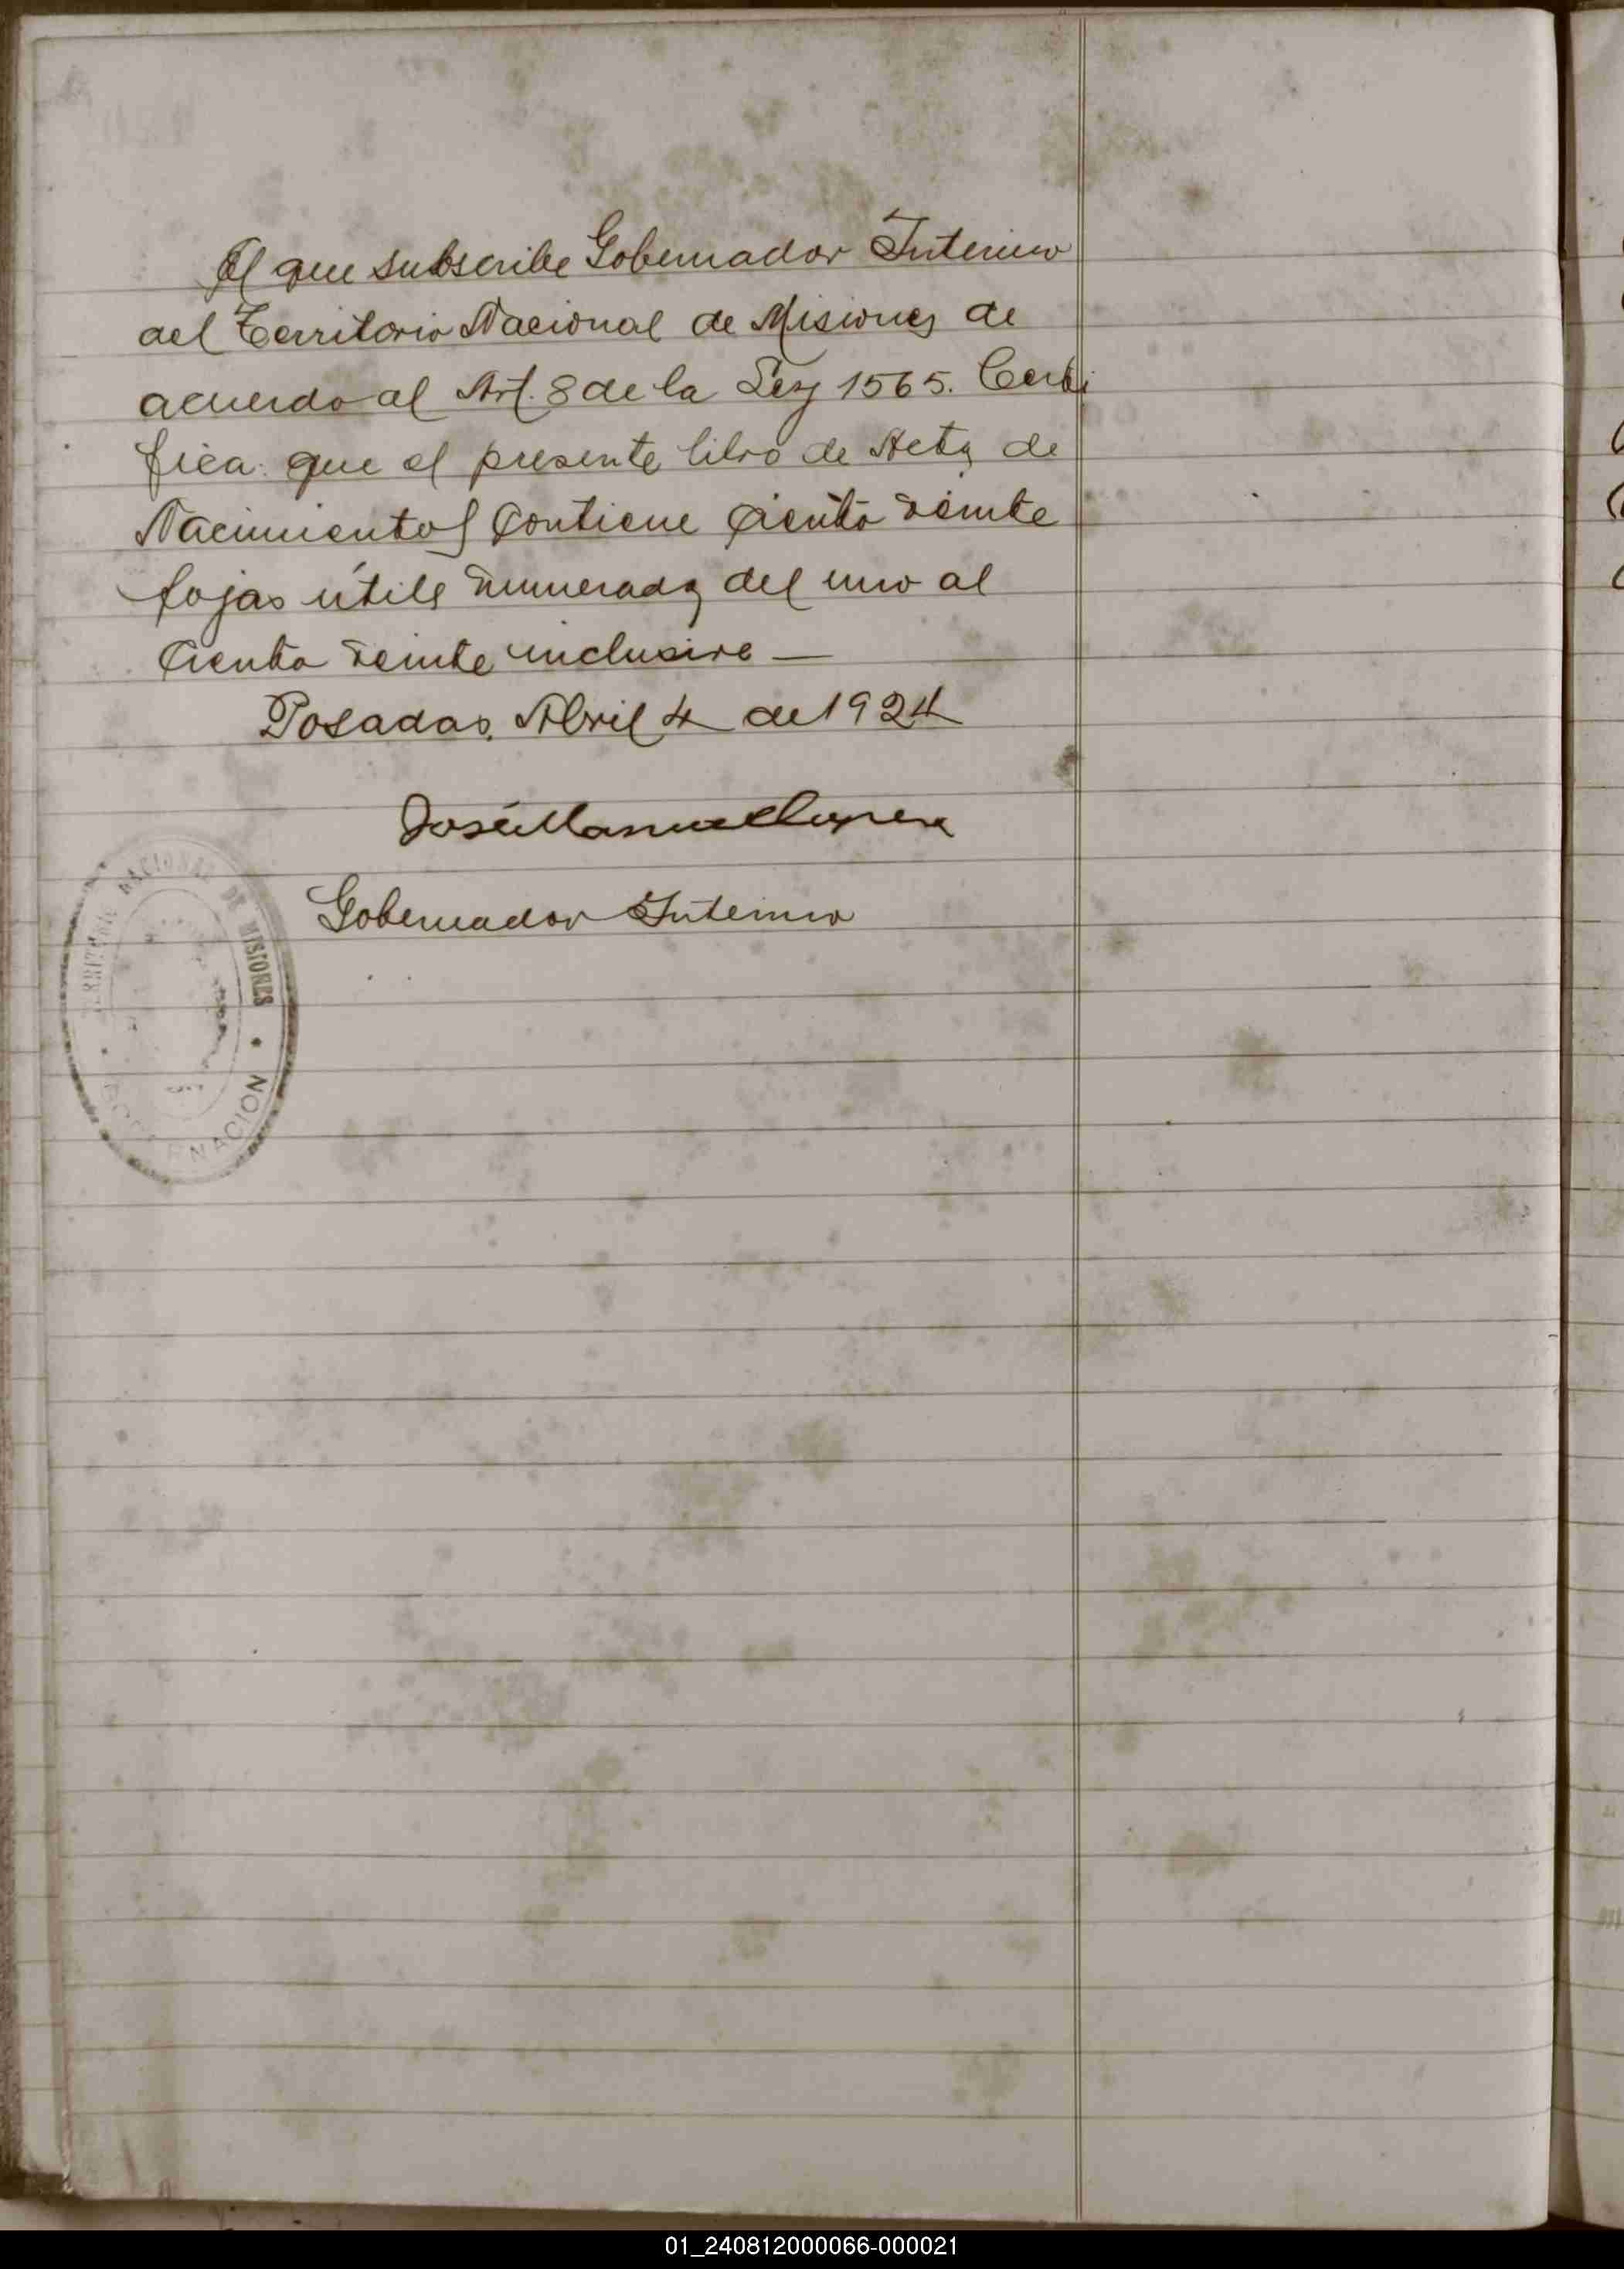 El que subscribe Gobernador Interino
del Territorio Nacional de Misiones de
acuerdo al Art. 8 de la Ley 1565. Certi
fica: que el presente libro de Actas de
Nacimientos contiene ciento veinte
fojas útiles numeradas del uno al
ciento veinte inclusive —
Posadas, Abril 4 de 1924
José Manuel
Gobernador Interino
TERRITORIO NACIONAL DE MISIONES
GOBERNACION
01_240812000066-000021